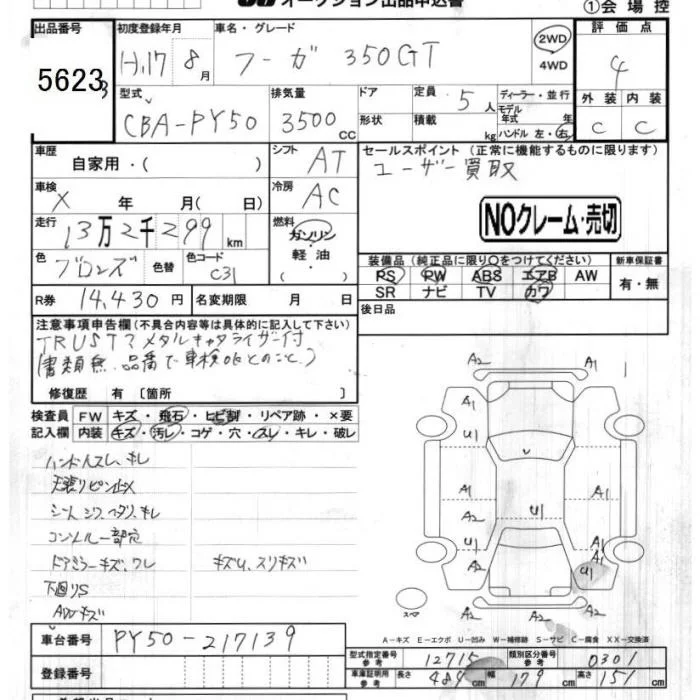 オークション出品申込書
①会場控
出品番号
初度登録年月
車名・グレード
評価点
5623
H.17 8月
フーガ 350GT
2WD
4WD
4
型式
排気量
ドア
定員
5人
ディーラー・並行
モデル
年式 年
外装
内装
CBA-PY50
3500cc
形状
積載
kg
ハンドル 左・右
C
C
車歴
自家用・( )
シフト
AT
セールスポイント (正常に機能するものに限ります)
ユーザー買取
車検
X 年 月( 日)
冷房
AC
NOクレーム・売切
走行
13万2千299km
燃料
ガソリン
軽油
( )
色
ブロンズ
色替
色コード
C31
装備品 (純正品に限り○をつけてください)
新車保証書
PS PW ABS エアB AW
SR ナビ TV カワ
有・無
R券
14,430円
名変期限 月 日
後日品
注意事項申告欄(不具合内容等は具体的に記入して下さい)
TRUST?メタルキャタライザー付
(書類無、品番で車検OKとのこと。)
修復歴 有〔箇所
検査員
記入欄
FW キズ・飛石・ヒビ割・リペア跡・×要
内装 キズ・汚レ・コゲ・穴・スレ・キレ・破レ
ハンドルスレ、キレ
天張リピン止X
シートシワ、ヘタリ、キレ
コンソール一部
ドアミラーキズ、ワレ
キズU、スリキズ
下廻りS
AWキズ
A2 A1
A1
U1
A1
A2
U1
A1
A2
A1
A1
U1
A2 A2
スペア
A-キズ E-エクボ U-凹み W-補修跡 S-サビ C-腐食 XX-交換済
車台番号
PY50-217139
登録番号
型式指定番号
参考
12715
類別区分番号
参考
0301
車庫証明用
参考
長さ 484cm
幅 179cm
高さ 151cm